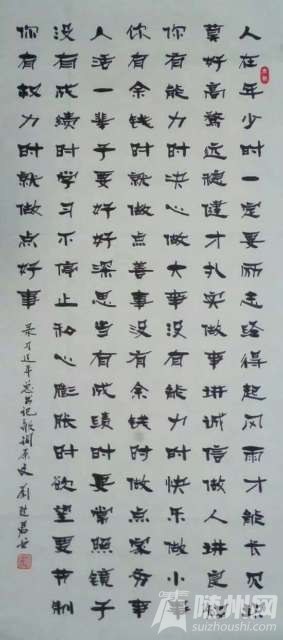 人在年少时一定要励志经得起风雨才能长见识
莫好高骛远德健才扎实做事讲诚信做人讲良知
你有能力时决心做大事没有能力时快乐做小事
你有余钱时就做点善事没有余钱时做点家务事
人活一辈子要好好深思当有成绩时要常照镜子
没有成绩时学习不停止私心膨胀时欲望要节制
你有权力时就做点好事
录习近平总书记
随州网
suizhoushi.com